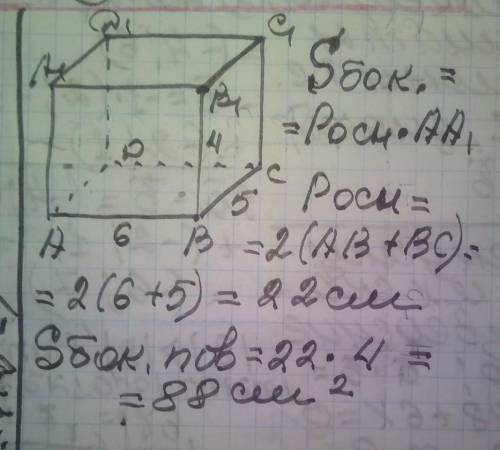 D₁ C₁
A₁ B₁
D C
4 5
A 6 B
Sбок. =
= Pосн · AA₁
Pосн =
= 2(AB + BC) =
= 2(6 + 5) = 22 см
Sбок. пов = 22 · 4 =
= 88 см²